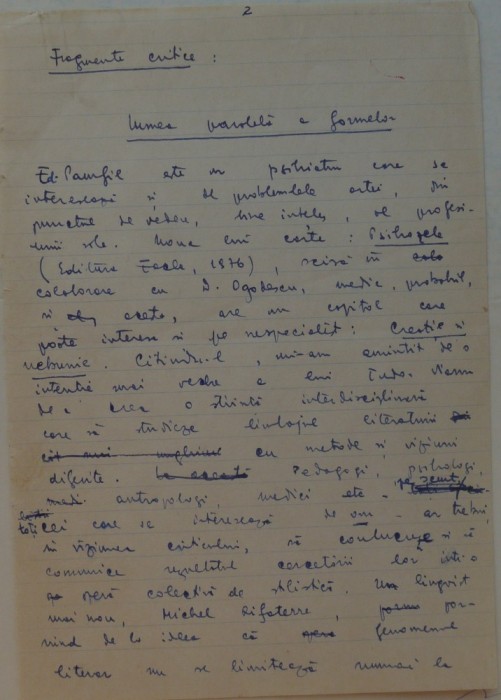 2
Fragmente critice :
Lumea paralelă a formelor
Ed. Pamfil este un psihiatru care se
interesează și de problemele artei, din
punctul de vedere, bine înțeles, al profesi-
unii sale. Noua lui carte : Psihozele
( Editura Facla, 1976 ), scrisă în colo
colaborare cu D. Ogodescu, medic, probabil,
și acesta, are un capitol care
poate interesa și pe nespecialist : Creație și
nebunie. Citindu-l, mi-am amintit de o
intenție mai veche a lui Tudor Vianu
de a crea o știință interdisciplinară
care să studieze limbajul literaturii
cu metode și viziuni
diferite. La această Pedagogi, psihologi,
antropologi medici etc. pe scurt,
toți cei care se interesează de om - ar trebui,
în viziunea criticului, să conlucreze și să
comunice rezultatul cercetării lor într-o
operă colectivă de stilistică. Un lingvist
mai nou, Michel Rifaterre, por-
nind de la ideea că fenomenul
literar nu se limitează numai la